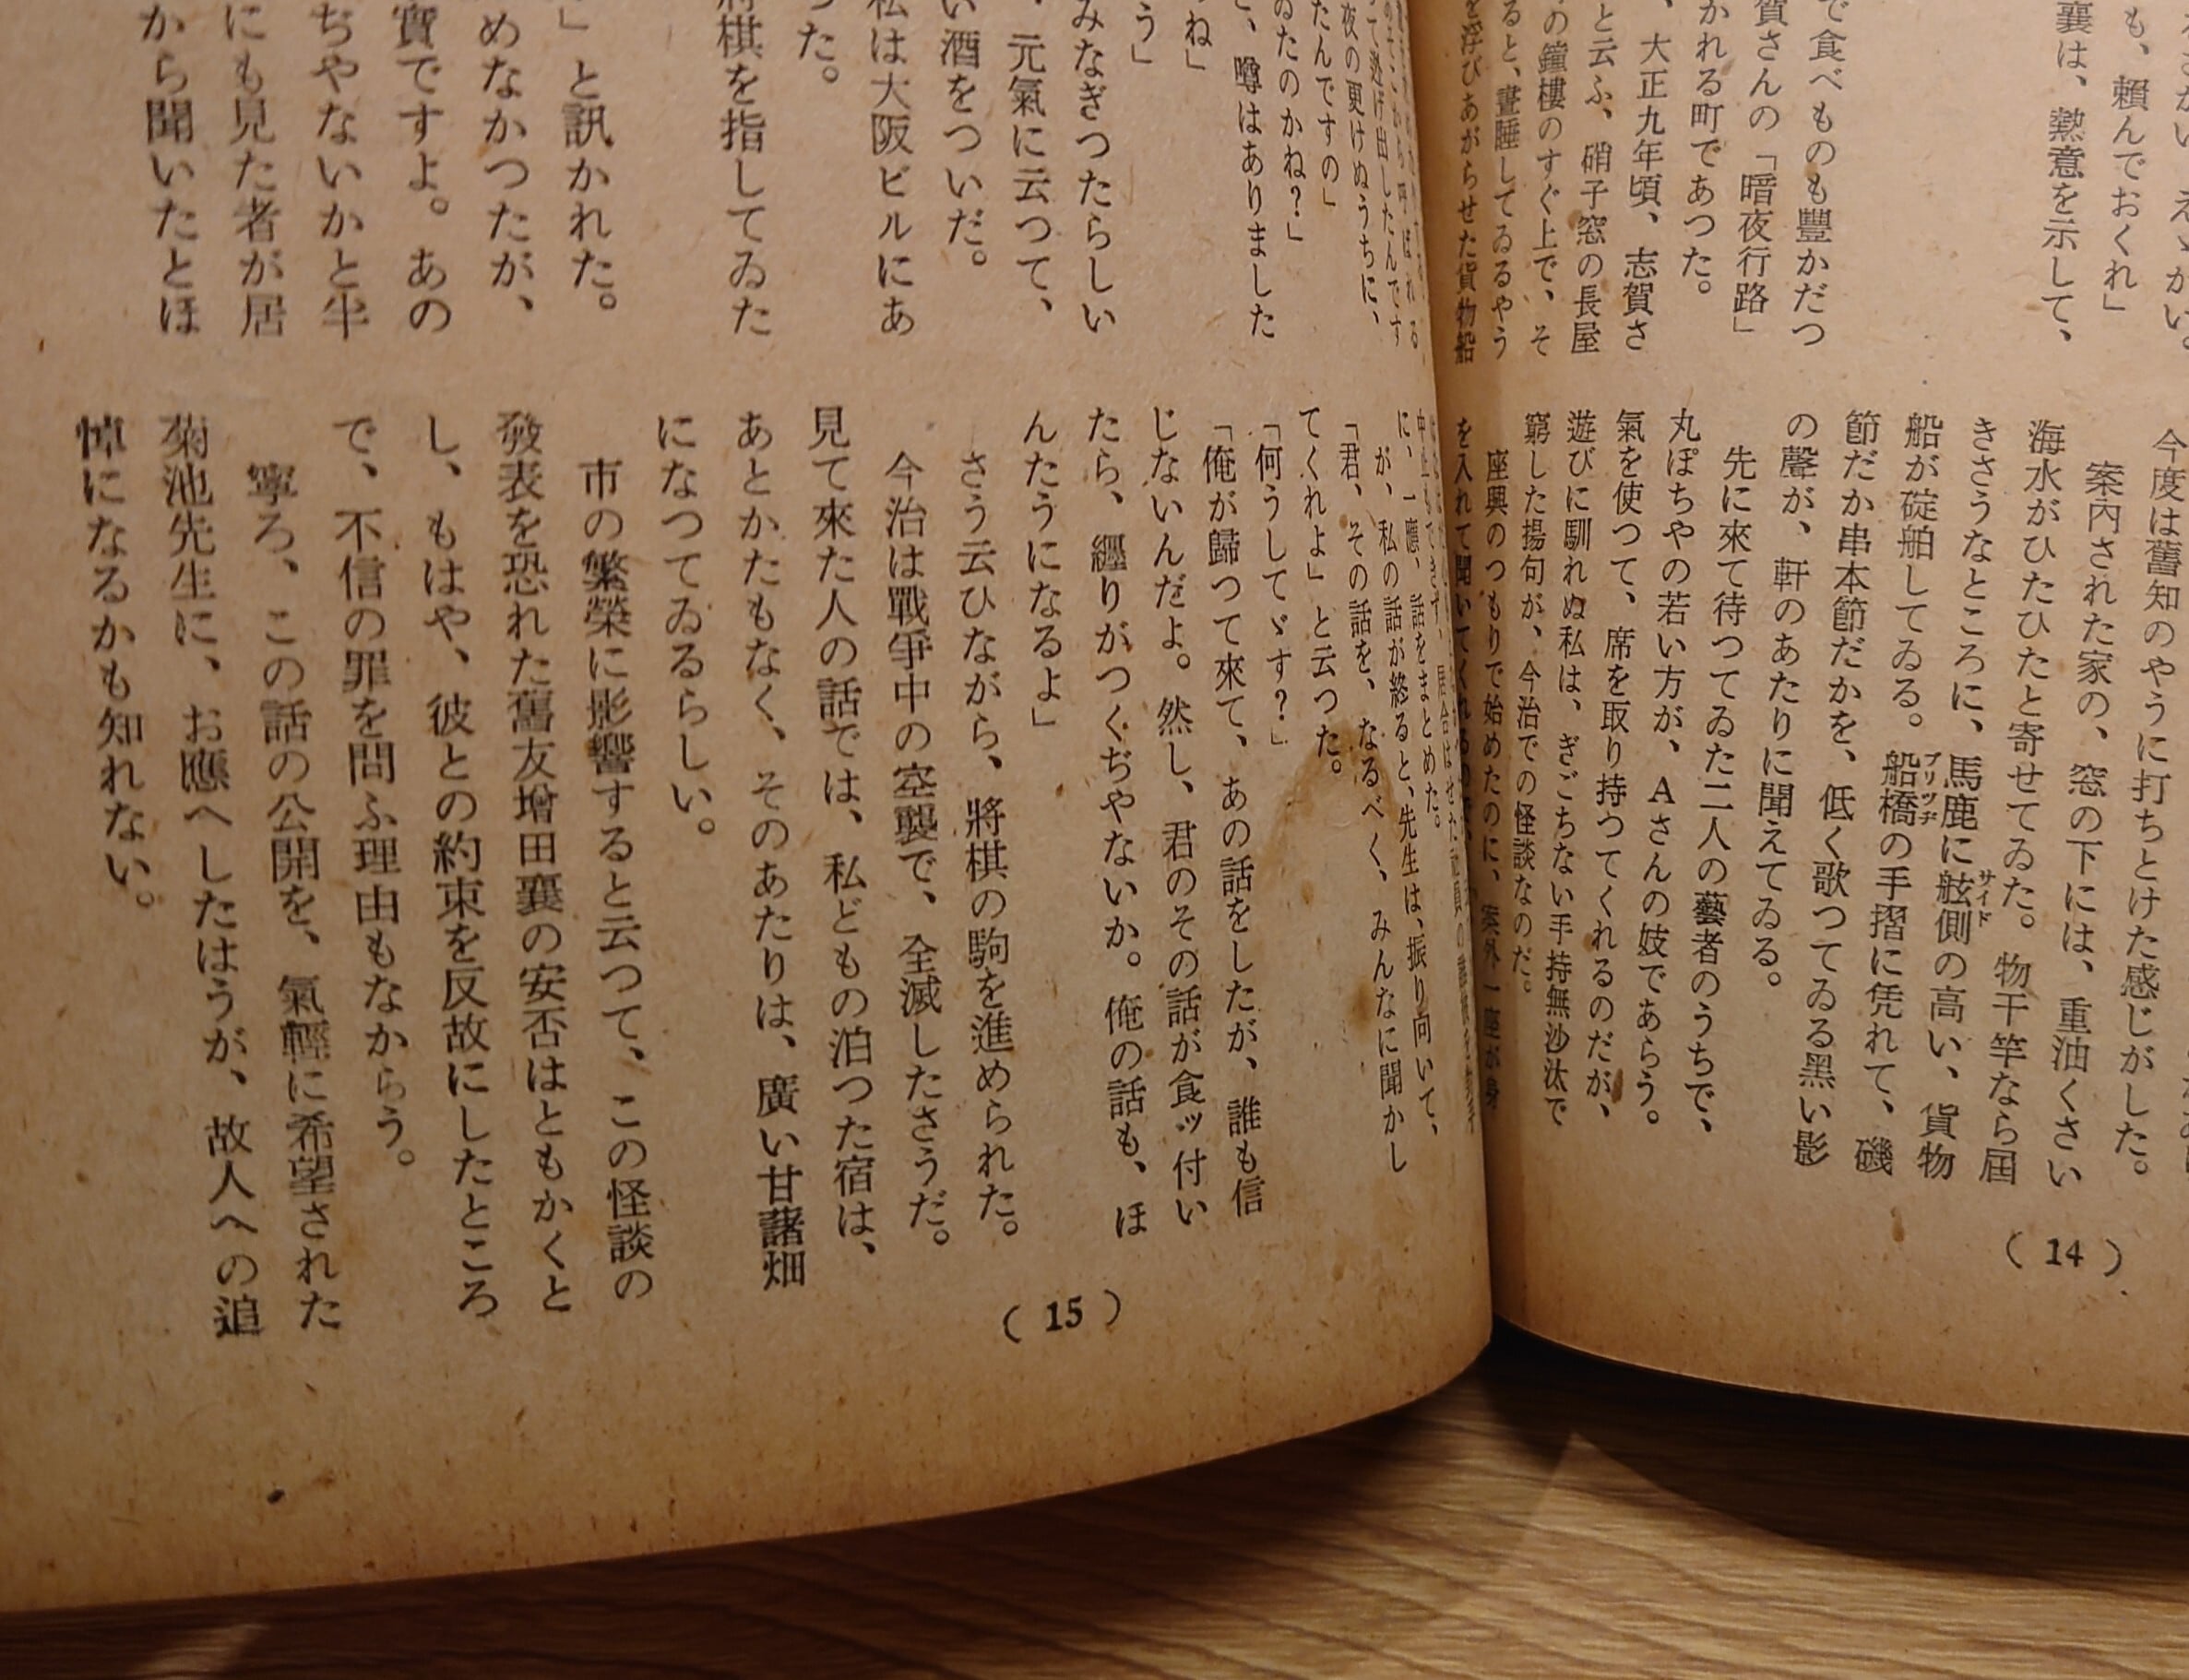 さかい、えゝかい。
も、賴んでおくれ」
襄は、熱意を示して、
で食べものも豐かだつ
賀さんの「暗夜行路」
かれる町であつた。
、大正九年頃、志賀さ
と云ふ、硝子窓の長屋
の鐘樓のすぐ上で、そ
ると、晝睡してゐるやう
を浮びあがらせた貨物船
今度は舊知のやうに打ちとけた感じがした。
案內された家の、窓の下には、重油くさい
海水がひたひたと寄せてゐた。物干竿なら屆
きさうなところに、馬鹿に舷側サイドの高い、貨物
船が碇舶してゐる。船橋ブリツヂの手摺に凭れて、磯
節だか串本節だかを、低く歌つてゐる黑い影
の聲が、軒のあたりに聞えてゐる。
先に來て待つてゐた二人の藝者のうちで、
丸ぽちやの若い方が、Aさんの妓であらう。
氣を使つて、席を取り持つてくれるのだが、
遊びに馴れぬ私は、ぎごちない手持無沙汰で
窮した揚句が、今治での怪談なのだ。
座興のつもりで始めたのに、案外一座が身
を入れて聞いてくれるので、
( 14 )
て逃げ出したんです
夜の更けぬうちに、
たんですの」
のたのかね?」
、噂はありました
ね」
う」
みなぎつたらしい
、元氣に云つて、
い酒をついだ。
私は大阪ビルにあ
つた。
將棋を指してゐた
」と訊かれた。
めなかつたが、
實ですよ。あの
ちやないかと半
にも見た者が居
から聞いたとほ
に、一應、話をまとめた。
が、私の話が終ると、先生は、振り向いて、
「君、その話を、なるべく、みんなに聞かし
てくれよ」と云つた。
「何うしてゞす?」
「俺が歸つて來て、あの話をしたが、誰も信
じないんだよ。然し、君のその話が食ッ付い
たら、纒りがつくぢやないか。俺の話も、ほ
んたうになるよ」
さう云ひながら、將棋の駒を進められた。
今治は戰爭中の空襲で、全滅したさうだ。
見て來た人の話では、私どもの泊つた宿は、
あとかたもなく、そのあたりは、廣い甘藷畑
になつてゐるらしい。
市の繁榮に影響すると云つて、この怪談の
發表を恐れた舊友增田襄の安否はともかくと
し、もはや、彼との約束を反故にしたところ
で、不信の罪を問ふ理由もなからう。
寧ろ、この話の公開を、氣輕に希望された
菊池先生に、お應へしたはうが、故人への追
悼になるかも知れない。
( 15 )